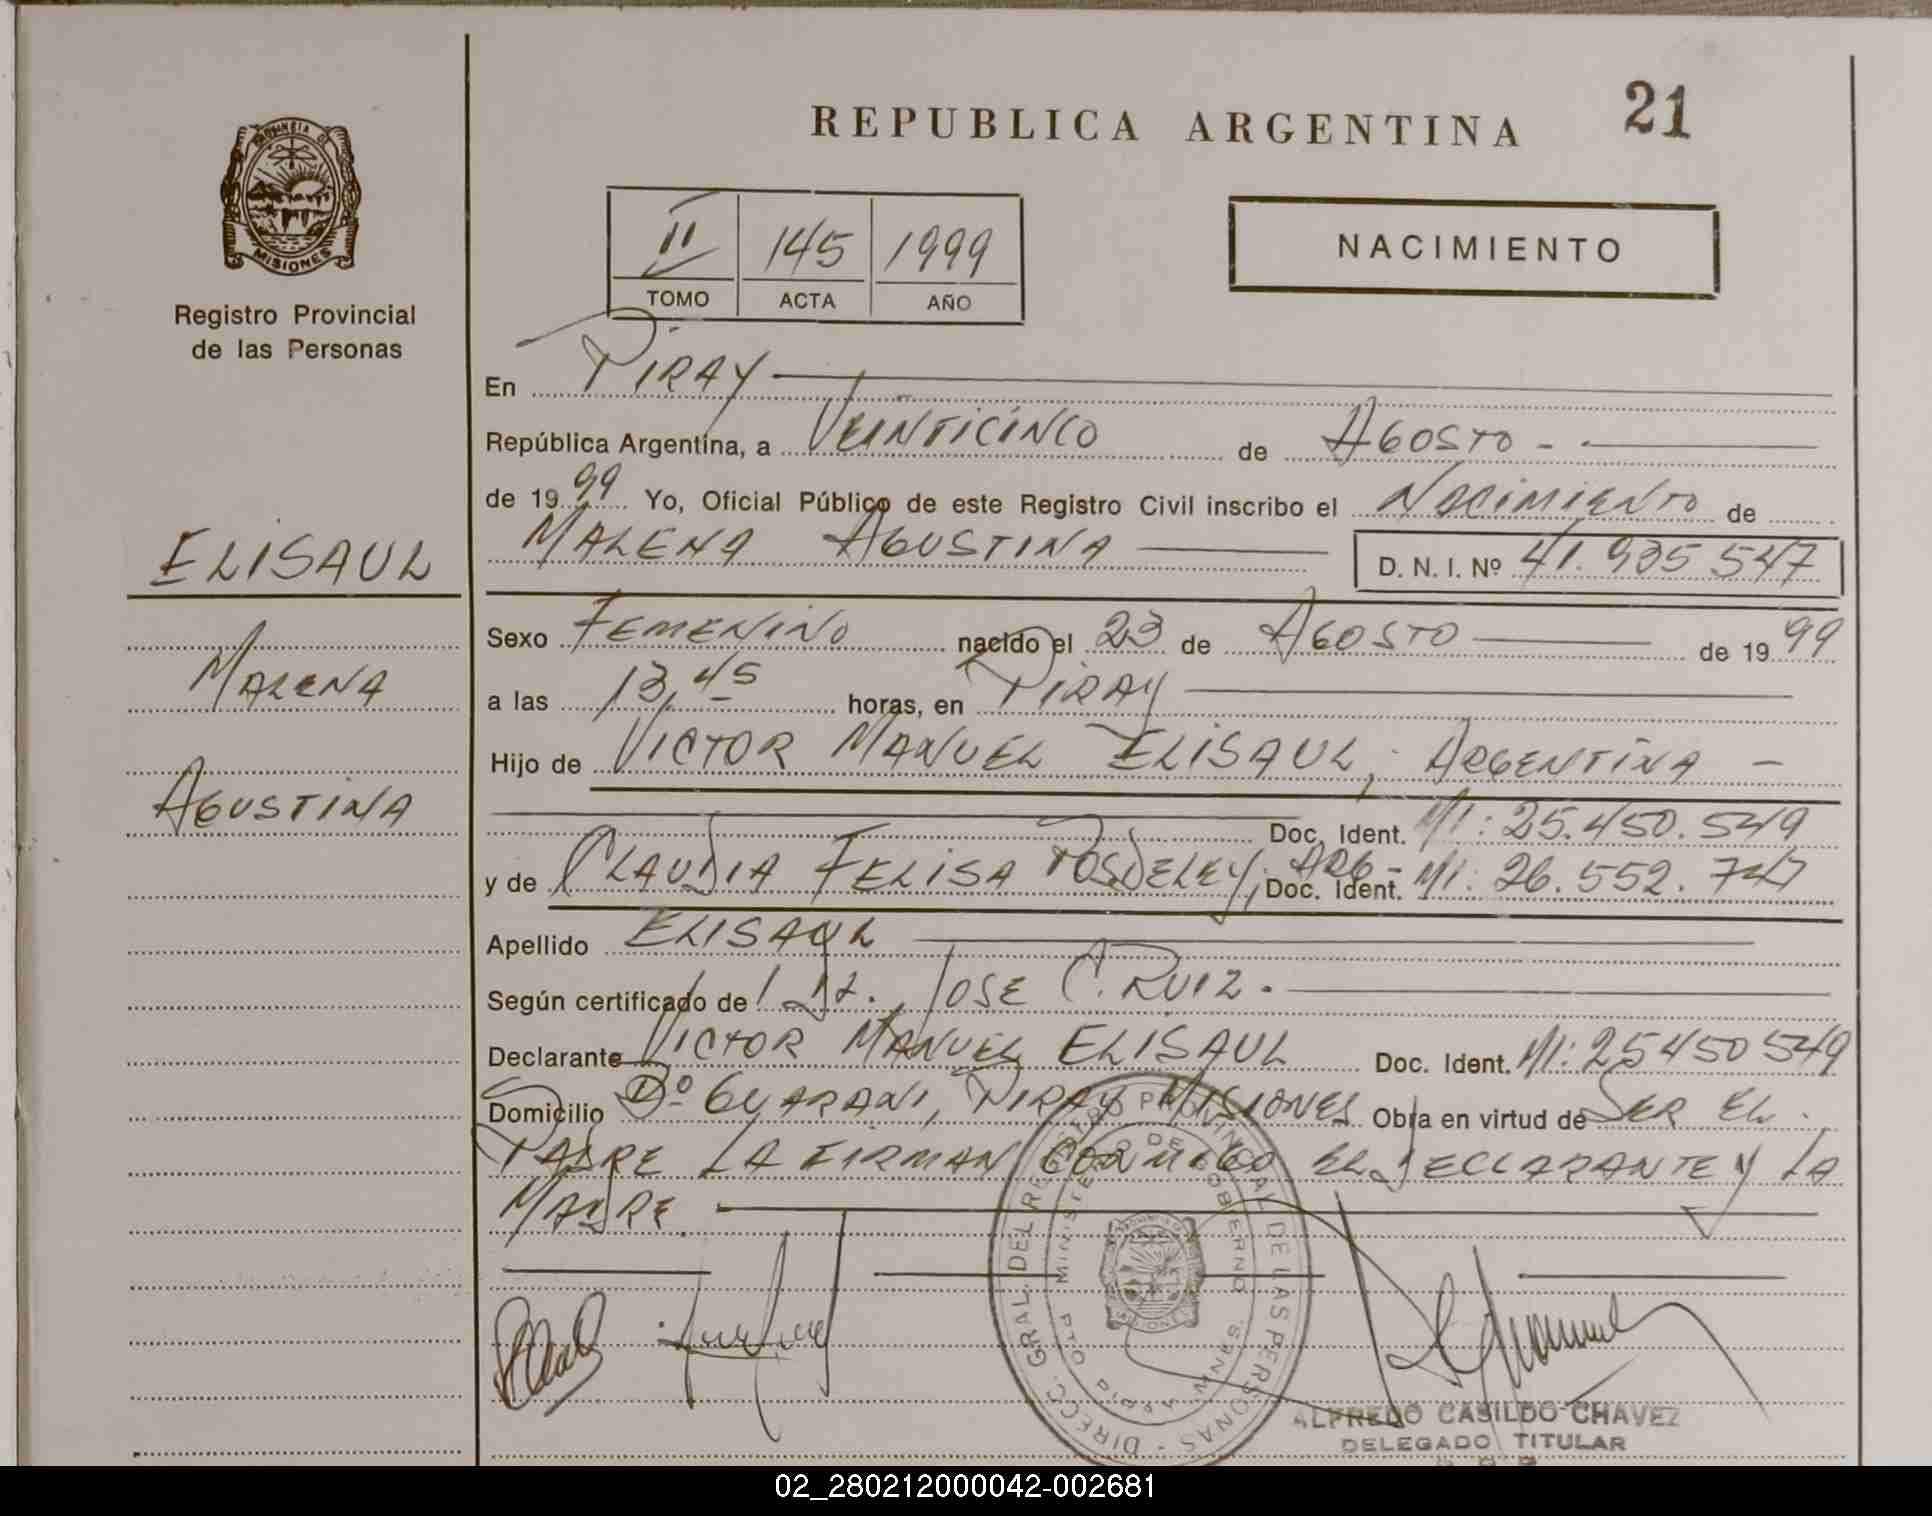 REPUBLICA ARGENTINA
21
PROVINCIA DE
MISIONES
Registro Provincial
de las Personas
II 145 1999
TOMO ACTA AÑO
NACIMIENTO
En PIRAY
República Argentina, a VEINTICINCO de AGOSTO
de 1999 Yo, Oficial Público de este Registro Civil inscribo el NACIMIENTO de
MALENA AGUSTINA D. N. I. Nº 41.935 547
ELISAUL
MALENA
AGUSTINA
Sexo FEMENINO nacido el 23 de AGOSTO de 1999
a las 13,45 horas, en PIRAY
Hijo de VICTOR MANUEL ELISAUL, ARGENTINA -
Doc. Ident. MI: 25.450.549
y de CLAUDIA FELISA POSDELEY, ARG- Doc. Ident. MI: 26.552.747
Apellido ELISAUL
Según certificado de JOSE C. RUIZ.
Declarante VICTOR MANUEL ELISAUL Doc. Ident. MI: 25450549
Domicilio Bº GUARANI, PIRAY MISIONES Obra en virtud de SER EL
PADRE LA FIRMAN CONMIGO EL DECLARANTE Y LA
MADRE
DIRECC. GRAL. DEL REGISTRO PROVINCIAL DE LAS PERSONAS -
MINISTERIO DE GOBIERNO
ALFREDO CASILDO CHAVEZ
DELEGADO TITULAR
02_280212000042-002681